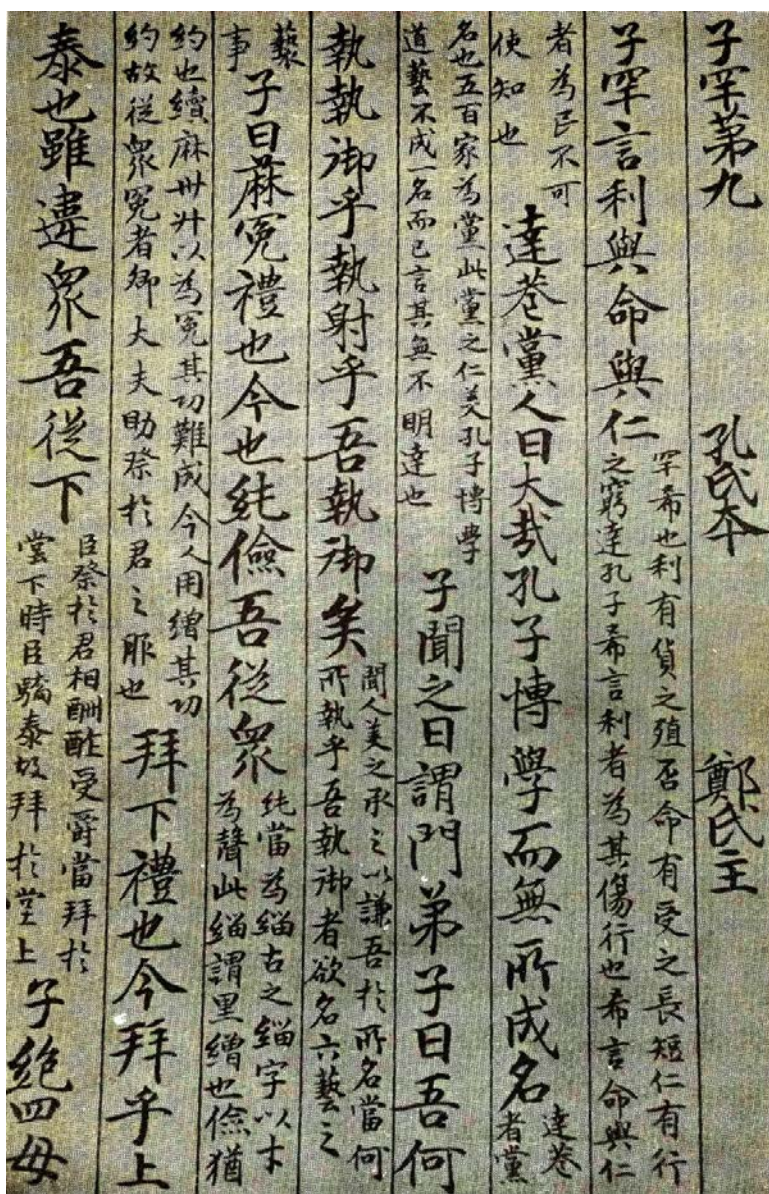 子罕第九 孔氏本 鄭氏主
子罕言利與命與仁 罕希也利有貨之殖否命有受之長短仁有行之窮達孔子希言利者為其傷行也希言命與仁
者為民不可使知也 達巷黨人曰大哉孔子博學而無所成名 達巷者黨
名也五百家為黨此黨之仁美孔子博學道藝不成一名而已言其無不明達也 子聞之曰謂門弟子曰吾何
執執御乎執射乎吾執御矣 聞人美之承之以謙吾於所名當何所執乎吾執御者欲名六藝之
藝事 子曰蔴冕禮也今也純儉吾從衆 純當為緇古之緇字以才為聲此緇謂黑繒也儉猶
約也績麻卅升以為冕其功難成今人用繒其功約故從衆冕者卿大夫助祭於君之服也 拜下禮也今拜乎上
泰也雖違衆吾從下 臣祭於君相酬酢受爵當拜於堂下時臣驕泰故拜於堂上 子絕四毋